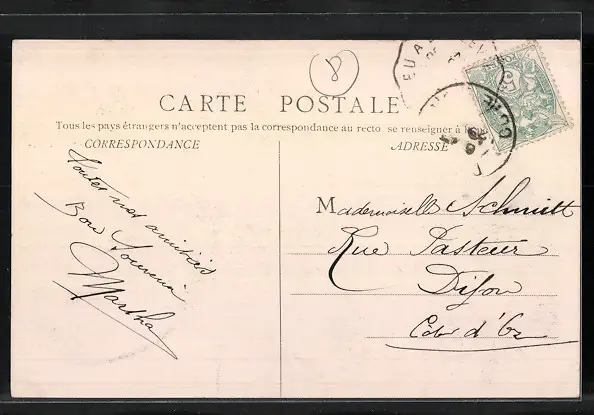 8
CARTE POSTALE
Tous les pays étrangers n'acceptent pas la correspondance au recto se renseigner à la
CORRESPONDANCE
ADRESSE
Toutes nos amitiés
Bon Souvenir
Martha
Mademoiselle Schmitt
Rue Pasteur
Dijon
Côte d'Or